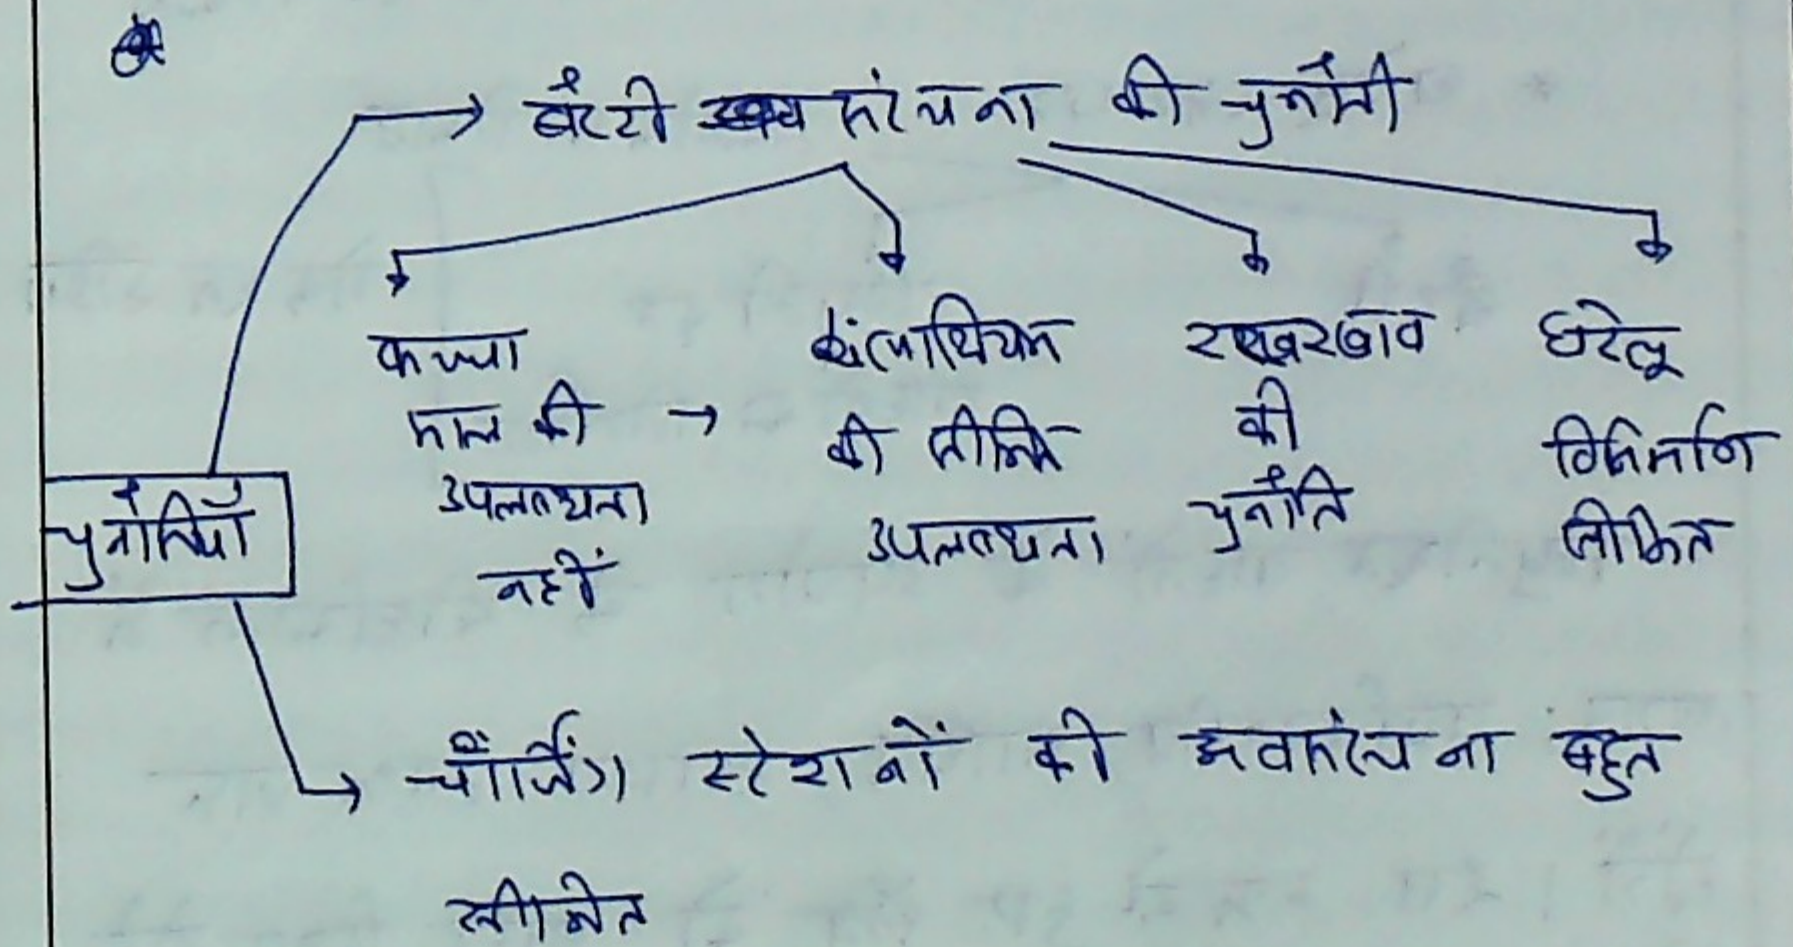 बैटरी अवसंरचना की चुनौती
कच्चा
माल की →
उपलब्धता
नहीं
की सीमित
उपलब्धता
रखरखाव
की
चुनौति
घरेलू
विनिर्माण
सीमित
चुनौतियाँ
→ चार्जिंग स्टेशनों की अवसंरचना बहुत
सीमित